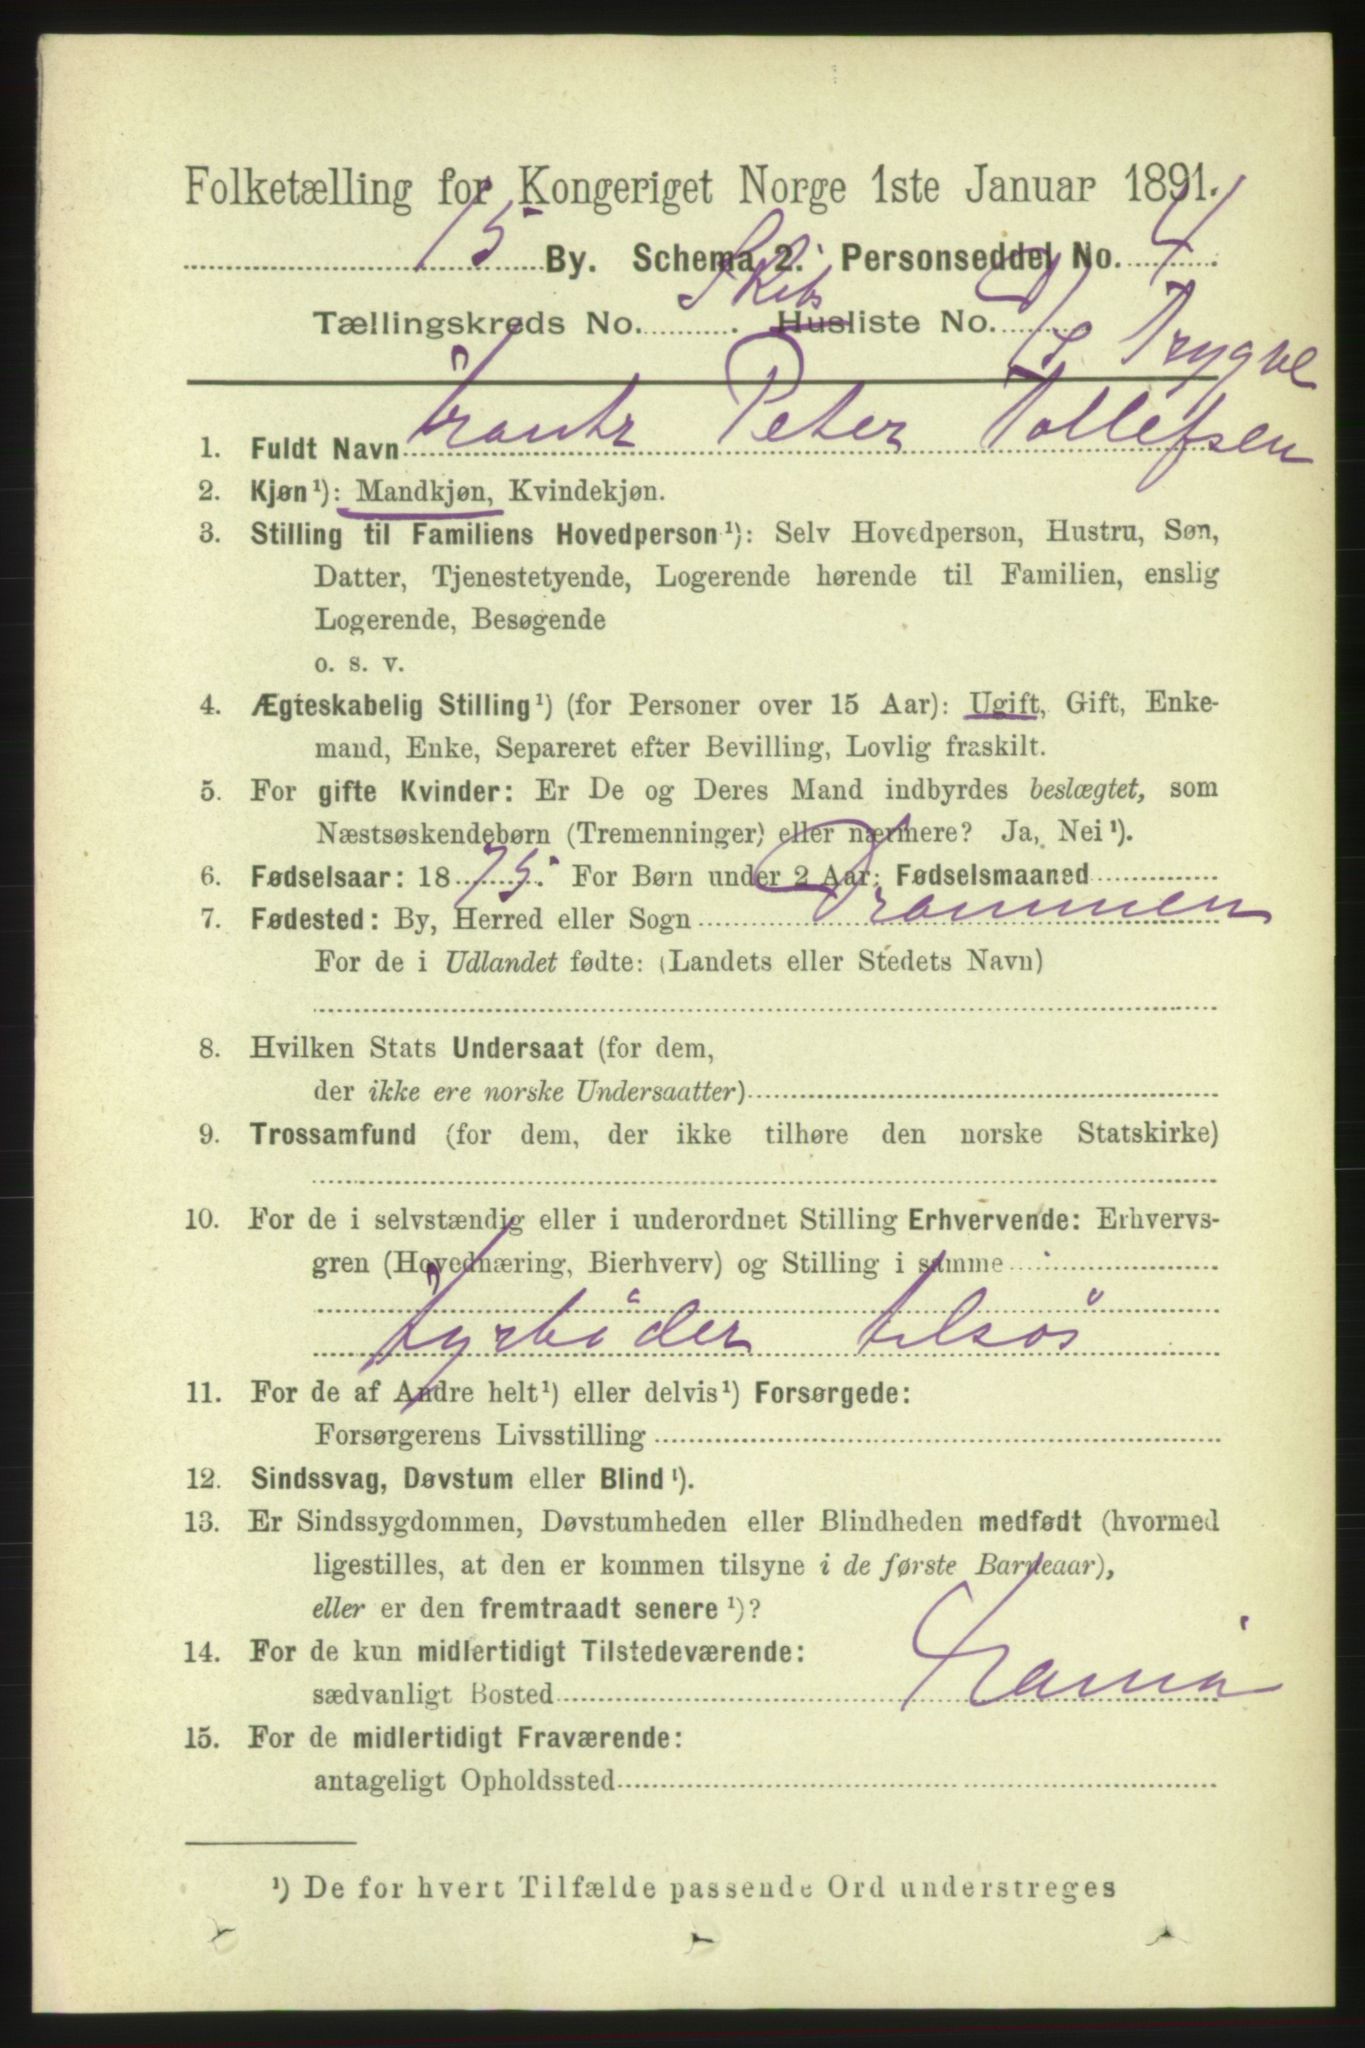 Folketælling for Kongeriget Norge 1ste Januar 1891.
15 By. Schema 2. Personseddel No. 4.
Tællingskreds No. . Skibs Husliste No.
D/S Trygve
1. Fuldt Navn Frantz Peter Tollefsen
2. Kjøn¹): Mandkjøn, Kvindekjøn.
3. Stilling til Familiens Hovedperson¹): Selv Hovedperson, Hustru, Søn,
Datter, Tjenestetyende, Logerende hørende til Familien, enslig
Logerende, Besøgende
o. s. v.
4. Ægteskabelig Stilling¹) (for Personer over 15 Aar): Ugift, Gift, Enke-
mand, Enke, Separeret efter Bevilling, Lovlig fraskilt.
5. For gifte Kvinder: Er De og Deres Mand indbyrdes beslægtet, som
Næstsøskendebørn (Tremenninger) eller nærmere? Ja, Nei¹).
6. Fødselsaar: 1875. For Børn under 2 Aar: Fødselsmaaned
7. Fødested: By, Herred eller Sogn Drammen
For de i Udlandet fødte: (Landets eller Stedets Navn)
8. Hvilken Stats Undersaat (for dem,
der ikke ere norske Undersaatter)
9. Trossamfund (for dem, der ikke tilhøre den norske Statskirke)
10. For de i selvstændig eller i underordnet Stilling Erhvervende: Erhvervs-
gren (Hovednæring, Bierhverv) og Stilling i samme
Fyrbøder tilsøs
11. For de af Andre helt¹) eller delvis¹) Forsørgede:
Forsørgerens Livsstilling
12. Sindssvag, Døvstum eller Blind¹).
13. Er Sindssygdommen, Døvstumheden eller Blindheden medfødt (hvormed
ligestilles, at den er kommen tilsyne i de første Barneaar),
eller er den fremtraadt senere¹)?
14. For de kun midlertidigt Tilstedeværende:
sædvanligt Bosted
15. For de midlertidigt Fraværende:
antageligt Opholdssted
¹) De for hvert Tilfælde passende Ord understreges